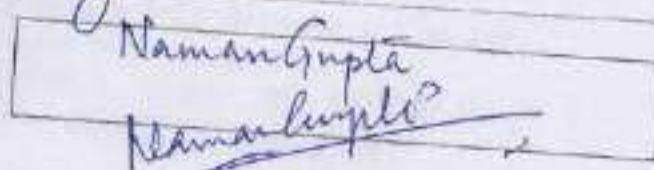 Naman Gupta
Naman Gupta